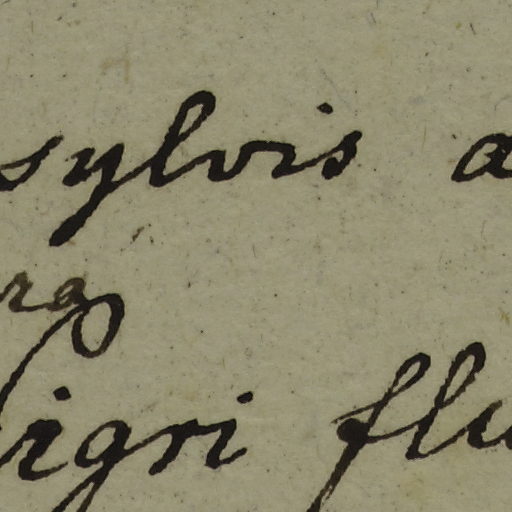 sylvis a
ra
Nigri flu